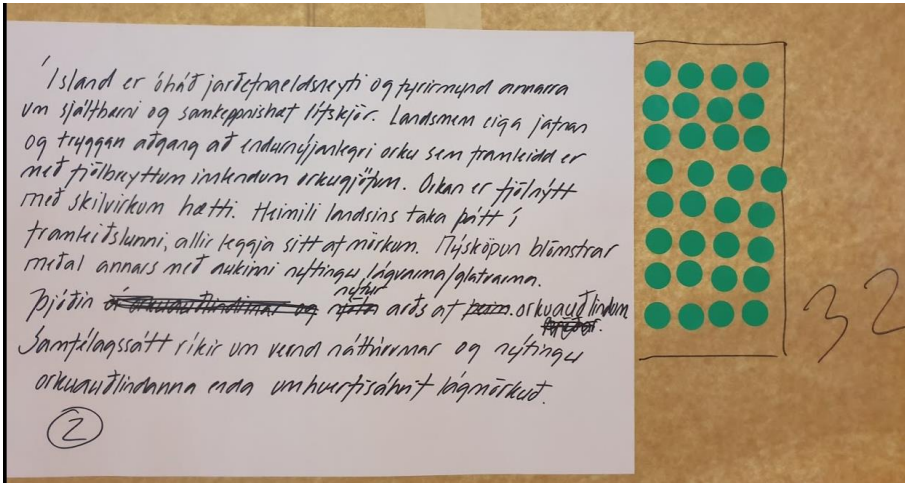 Ísland er óháð jarðefnaeldsneyti og fyrirmynd annarra
um sjálfbærni og samkeppnishæf lífskjör. Landsmenn eiga jafnan
og tryggan aðgang að endurnýjanlegri orku sem framleidd er
með fjölbreyttum innlendum orkugjöfum. Orkan er fjölnýtt
með skilvirkum hætti. Heimili landsins taka þátt í
framleiðslunni, allir leggja sitt af mörkum. Nýsköpun blómstrar
meðal annars með aukinni nýtingu lágvarma/glatvarma.
Þjóðin nýtur arðs af orkuauðlindum
Samfélagssátt ríkir um vernd náttúrunnar og nýtingu
orkuauðlindanna enda umhverfisáhrif lágmörkuð.
2
32